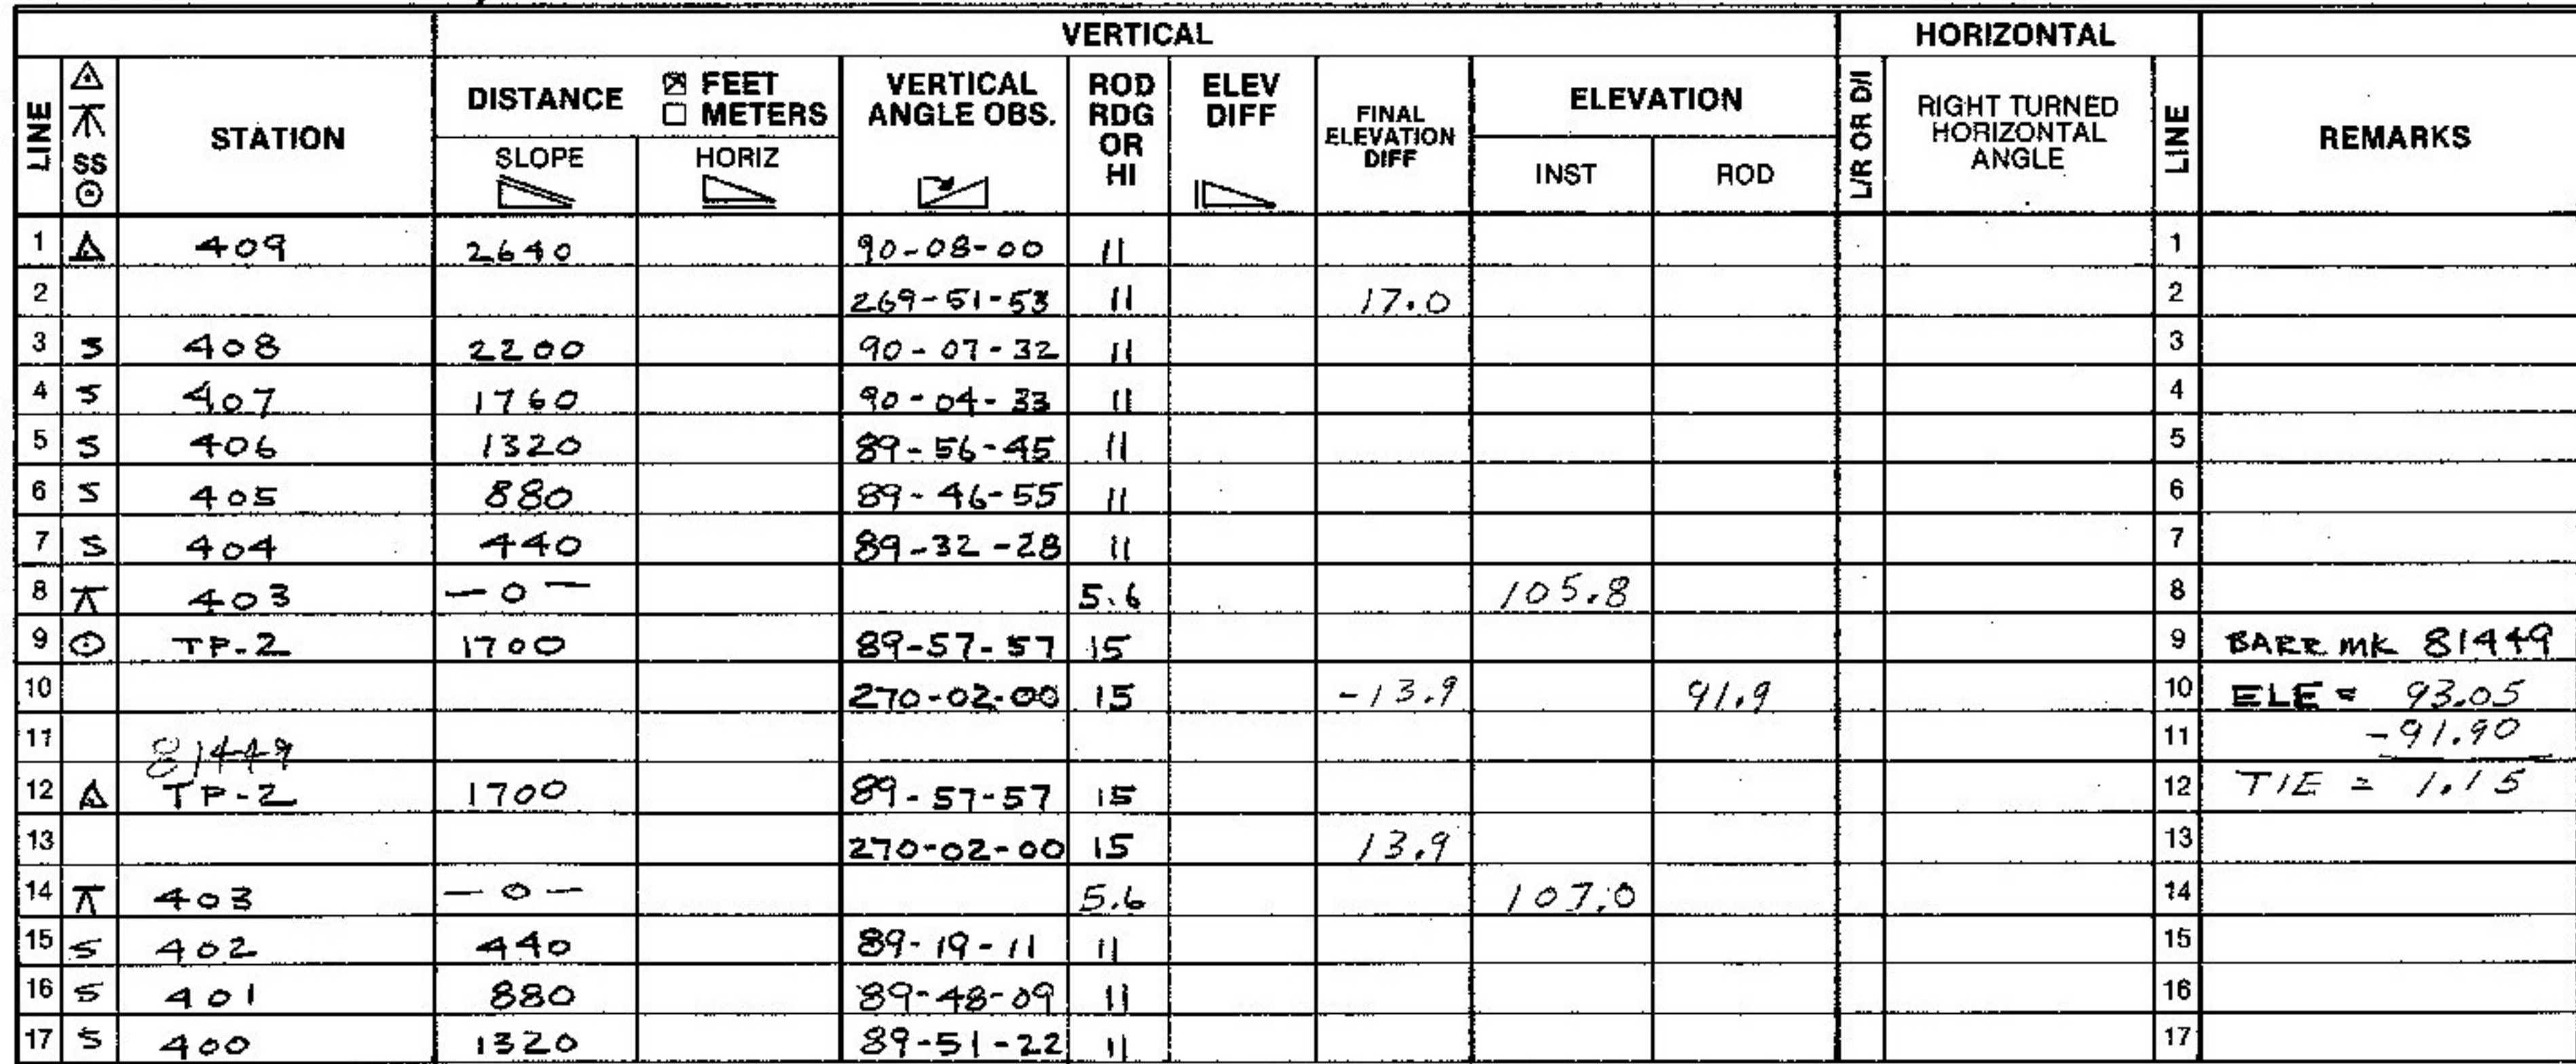 VERTICAL HORIZONTAL
LINE SS STATION DISTANCE ☒ FEET ☐ METERS SLOPE HORIZ VERTICAL ANGLE OBS. ROD RDG OR HI ELEV DIFF FINAL ELEVATION DIFF ELEVATION INST ROD L/R OR D/I RIGHT TURNED HORIZONTAL ANGLE LINE REMARKS
1 409 2640 90-08-00 11 1
2 269-51-53 11 17.0 2
3 S 408 2200 90-07-32 11 3
4 S 407 1760 90-04-33 11 4
5 S 406 1320 89-56-45 11 5
6 S 405 880 89-46-55 11 6
7 S 404 440 89-32-28 11 7
8 403 -0- 5.6 105.8 8
9 TP-2 1700 89-57-57 15 9 BARR MK 81449
10 270-02-00 15 -13.9 91.9 10 ELE = 93.05
11 81449 11 -91.90
12 TP-2 1700 89-57-57 15 12 TIE = 1.15
13 270-02-00 15 13.9 13
14 403 -0- 5.6 107.0 14
15 S 402 440 89-19-11 11 15
16 S 401 880 89-48-09 11 16
17 S 400 1320 89-51-22 11 17